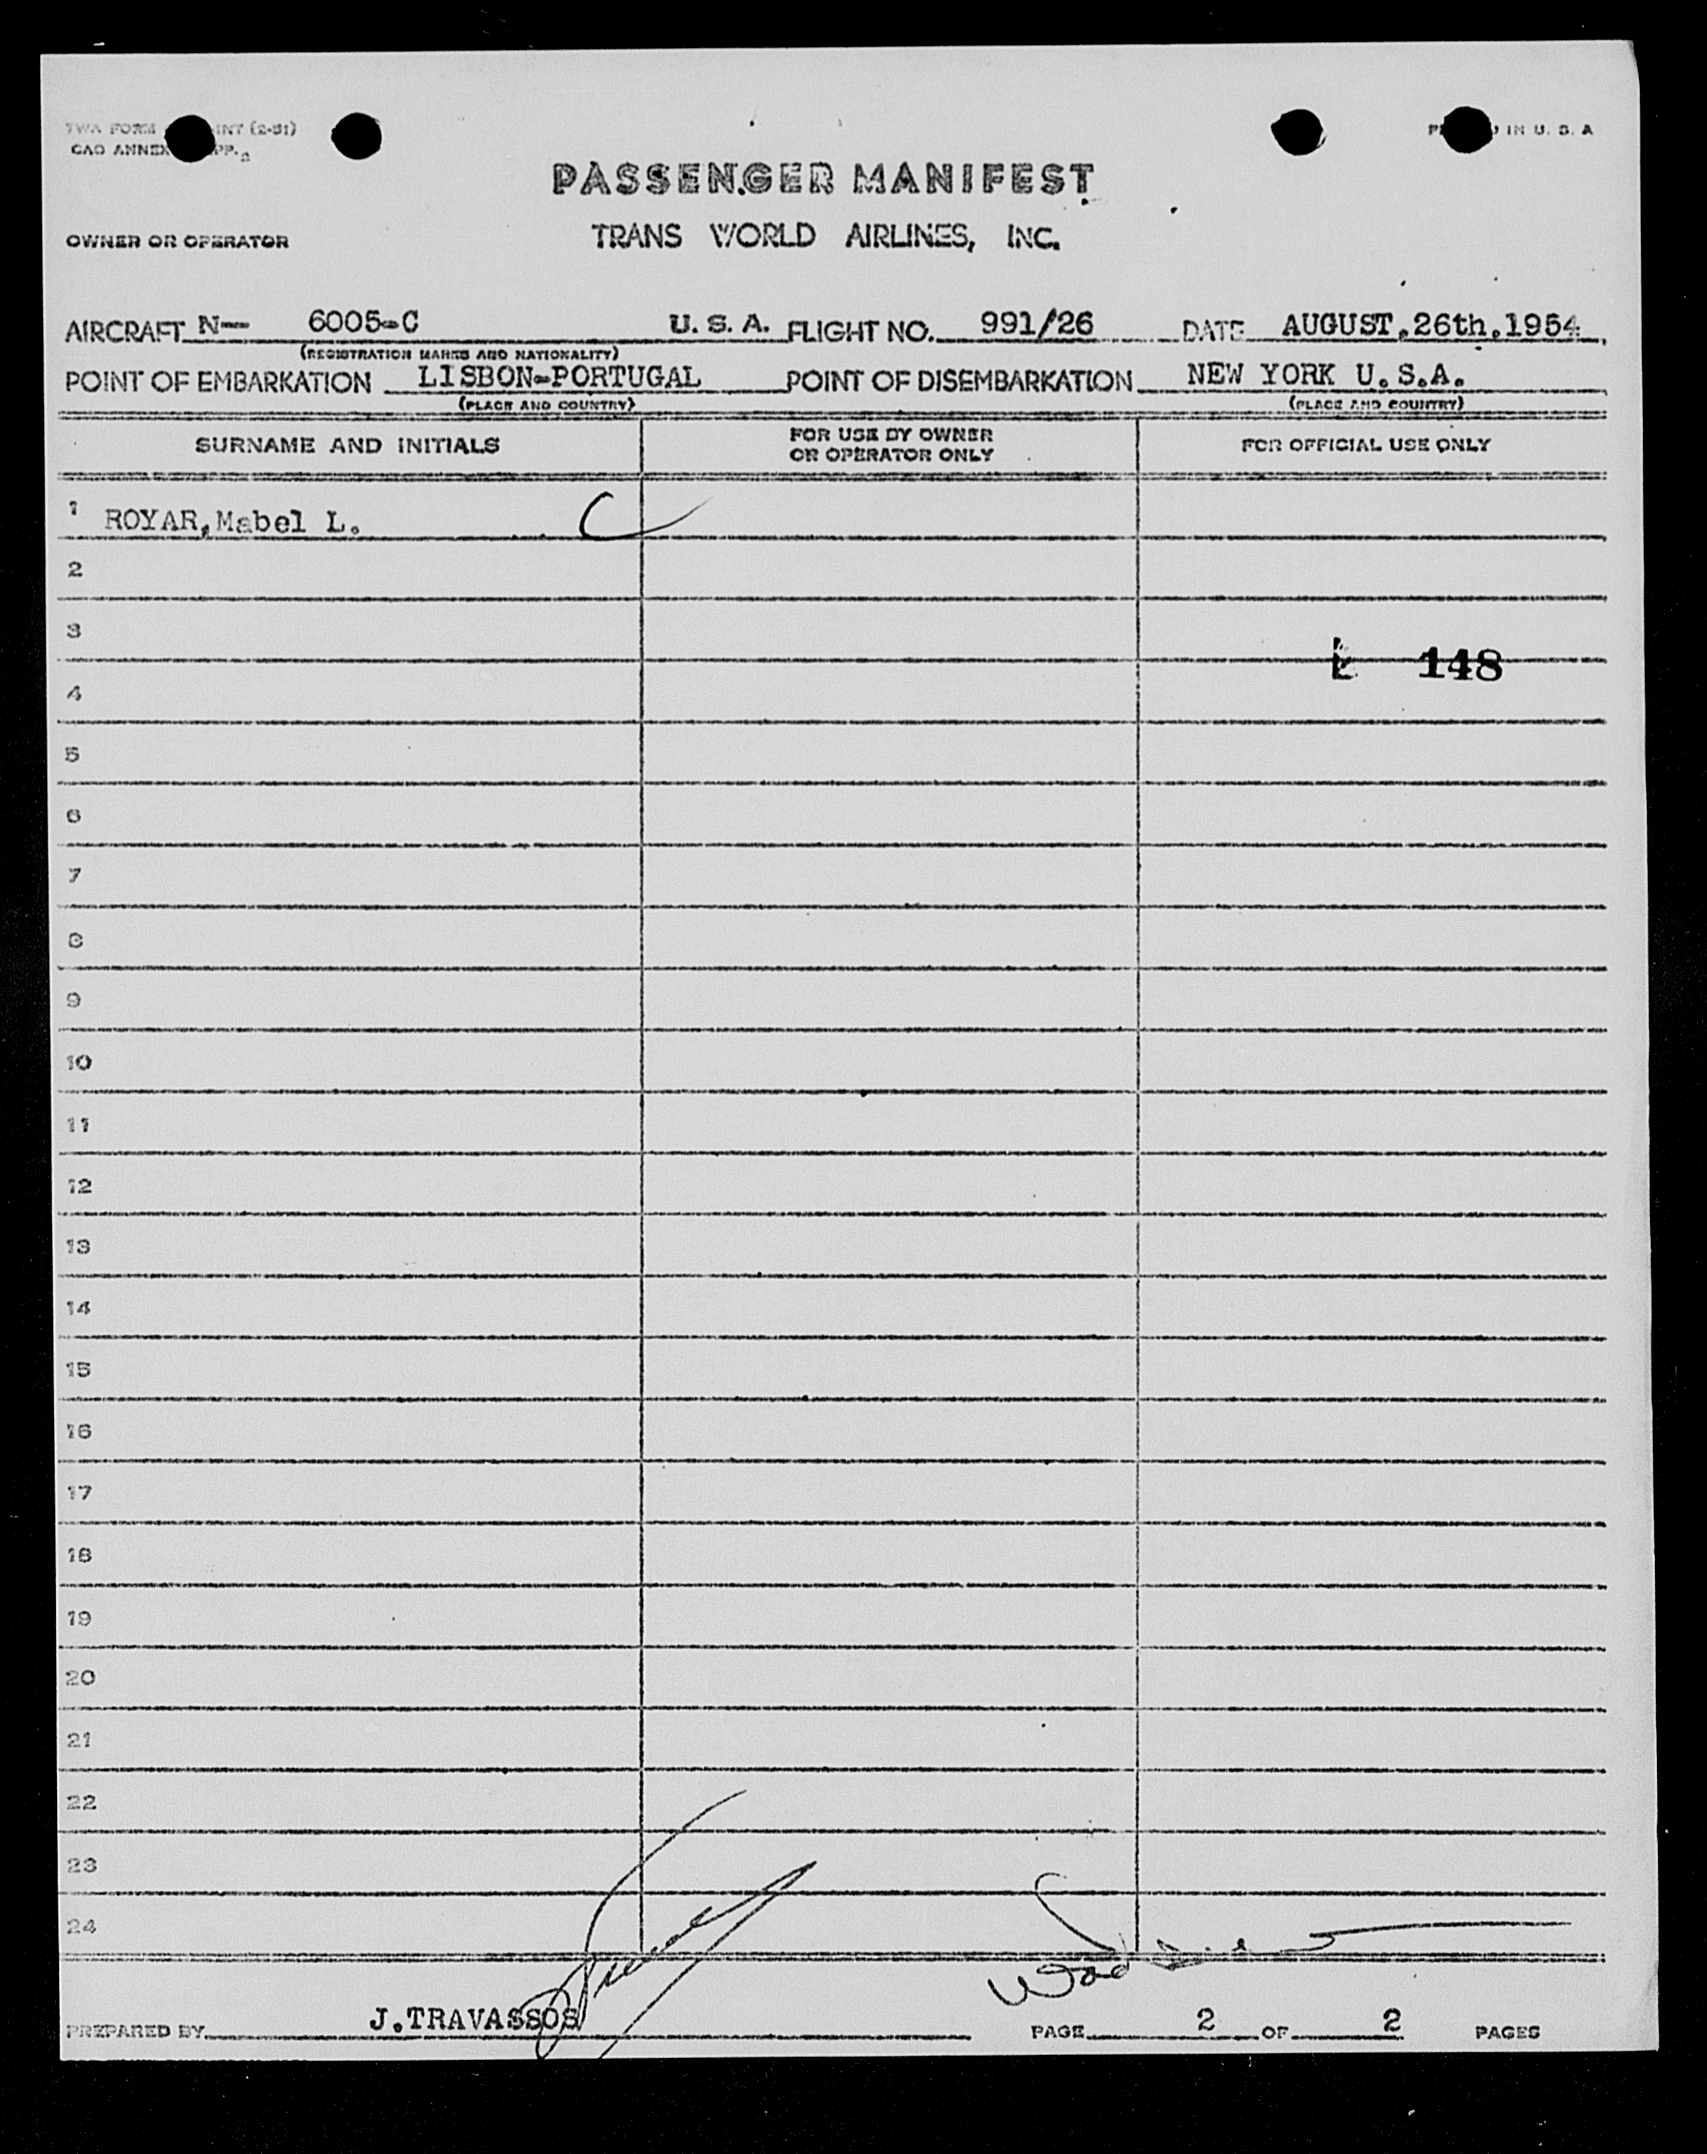 TWA FORM INT (2-51) PRINTED IN U. S. A
CAO ANNEX APP. 2
PASSENGER MANIFEST
OWNER OR OPERATOR TRANS WORLD AIRLINES, INC.
AIRCRAFT N— 6005-C U. S. A. FLIGHT NO. 991/26 DATE AUGUST,26th,1954
(REGISTRATION MARKS AND NATIONALITY)
POINT OF EMBARKATION LISBON-PORTUGAL POINT OF DISEMBARKATION NEW YORK U.S.A.
(PLACE AND COUNTRY) (PLACE AND COUNTRY)
SURNAME AND INITIALS FOR USE BY OWNER OR OPERATOR ONLY FOR OFFICIAL USE ONLY
1 ROYAR,Mabel L. C
2
3
148
4
5
6
7
8
9
10
11
12
13
14
15
16
17
18
19
20
21
22
23
24
PREPARED BY J.TRAVASSOS PAGE 2 OF 2 PAGES